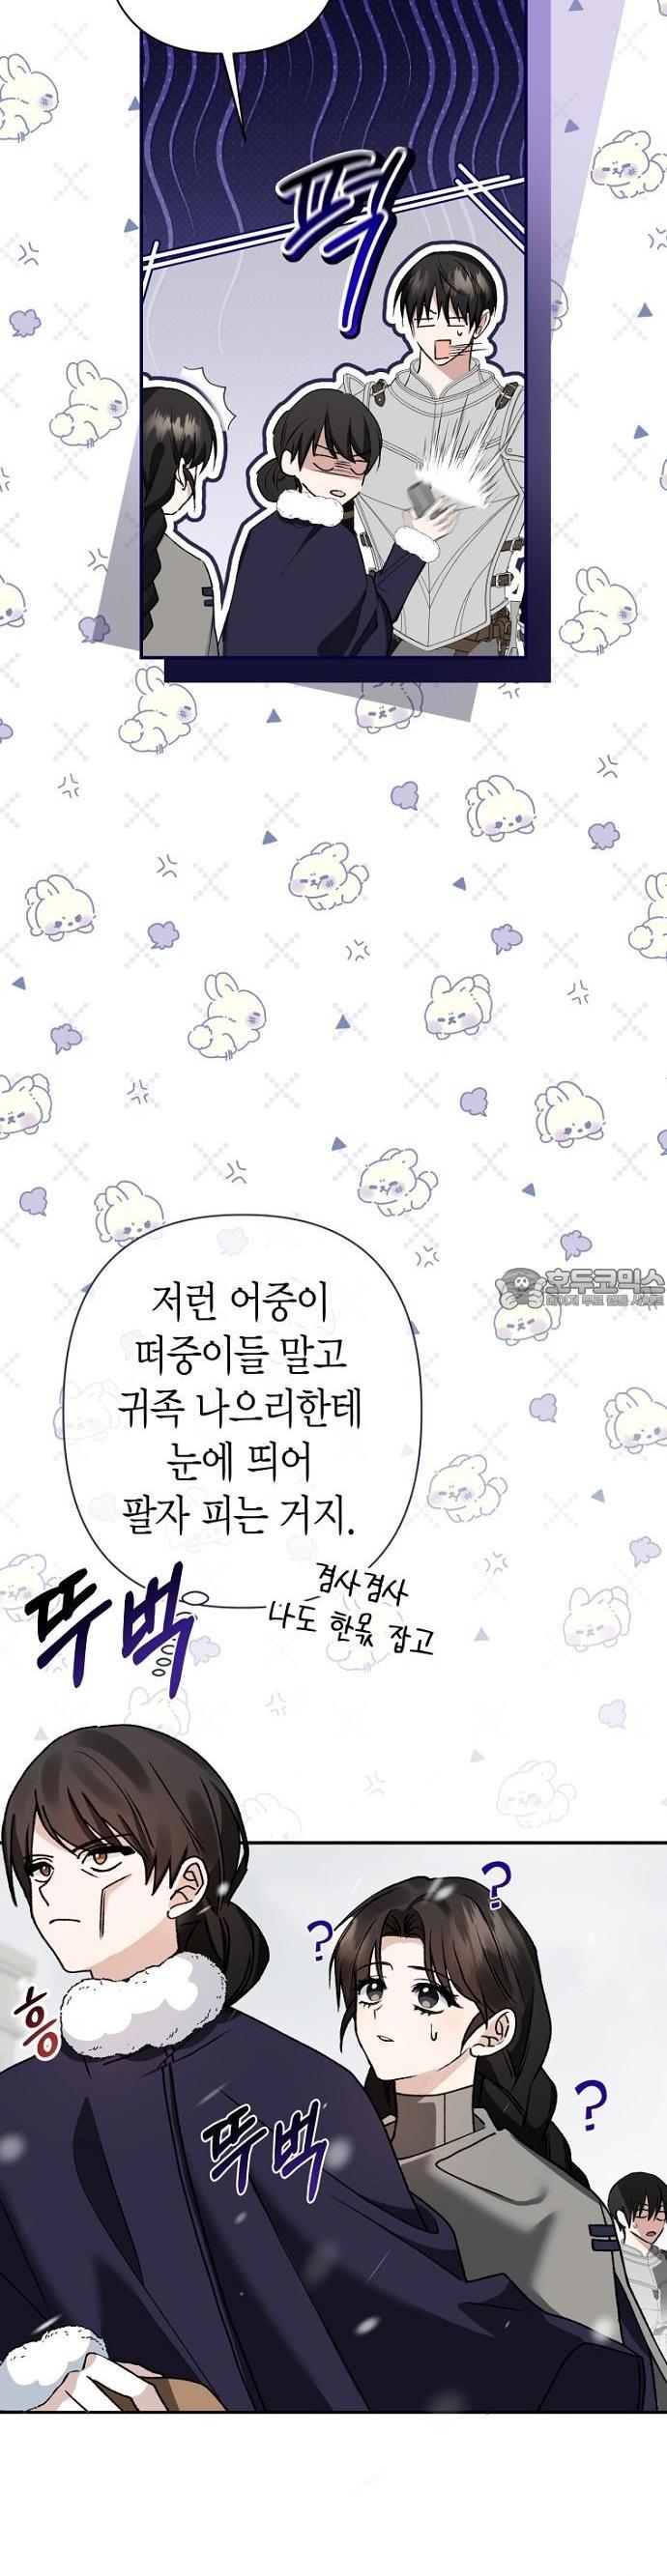 퍽
호두코믹스
저런 어중이
떠중이들 말고
귀족 나으리한테
눈에 띄어
팔자 피는 거지.
겸사겸사
나도 한몫 잡고
뚜벅
?
?
흥
?
뚜벅